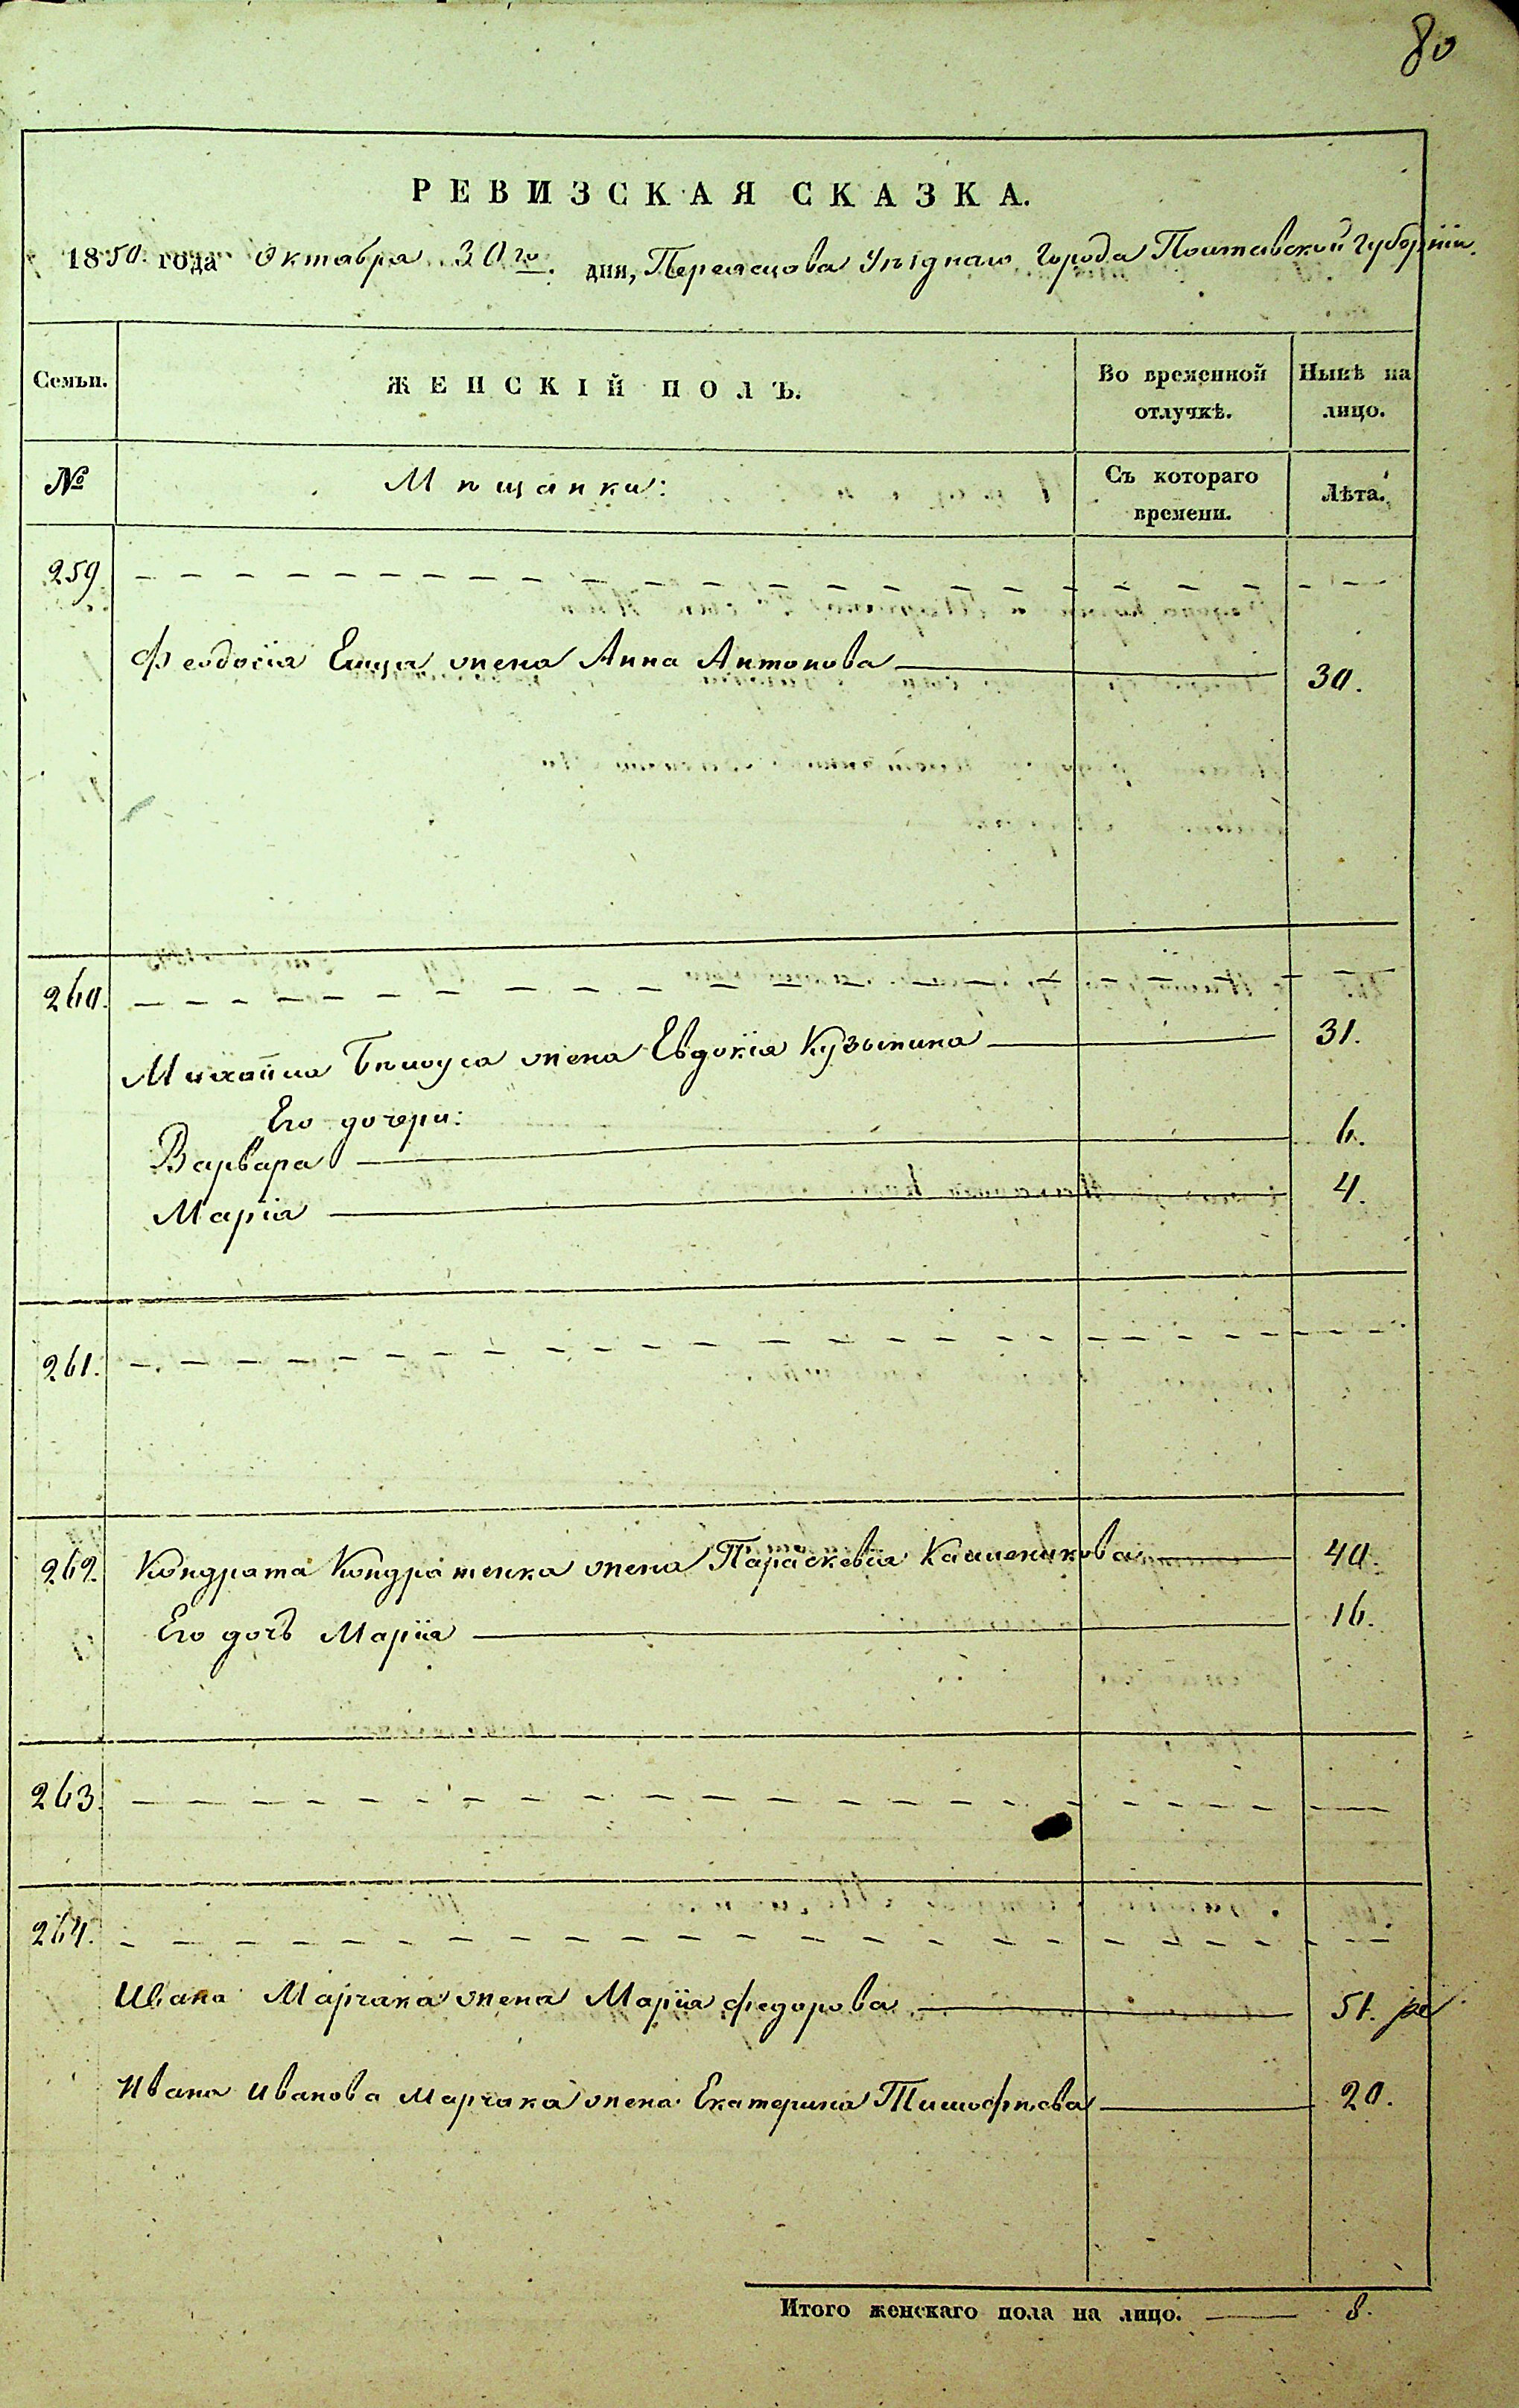 80
РЕВИЗСКАЯ СКАЗКА.
1850. года Октября 30го. дня, Переяслова Уѣзднаго Города Полтавской Губерніи.
Семьи. ЖЕНСКІЙ ПОЛЪ. Во временной отлучкѣ. Нынѣ на лицо.
№ Мѣщанки: Съ котораго времени. Лѣта.
259
Феодосія жена Анна Антонова 30.
260.
Михайла Бѣлоуса жена Евдокія Кузьмина 31.
Его дочери:
Варвара 6.
Марія 4.
261.
262. Кондрата Кондратенка жена Параскевія 40.
Его дочь Марія 16.
263.
264.
Ивана Марчака жена Марія Федорова 51.
Ивана Иванова Марчака жена Екатерина Тимофѣева 20.
Итого женскаго пола на лицо. 8.